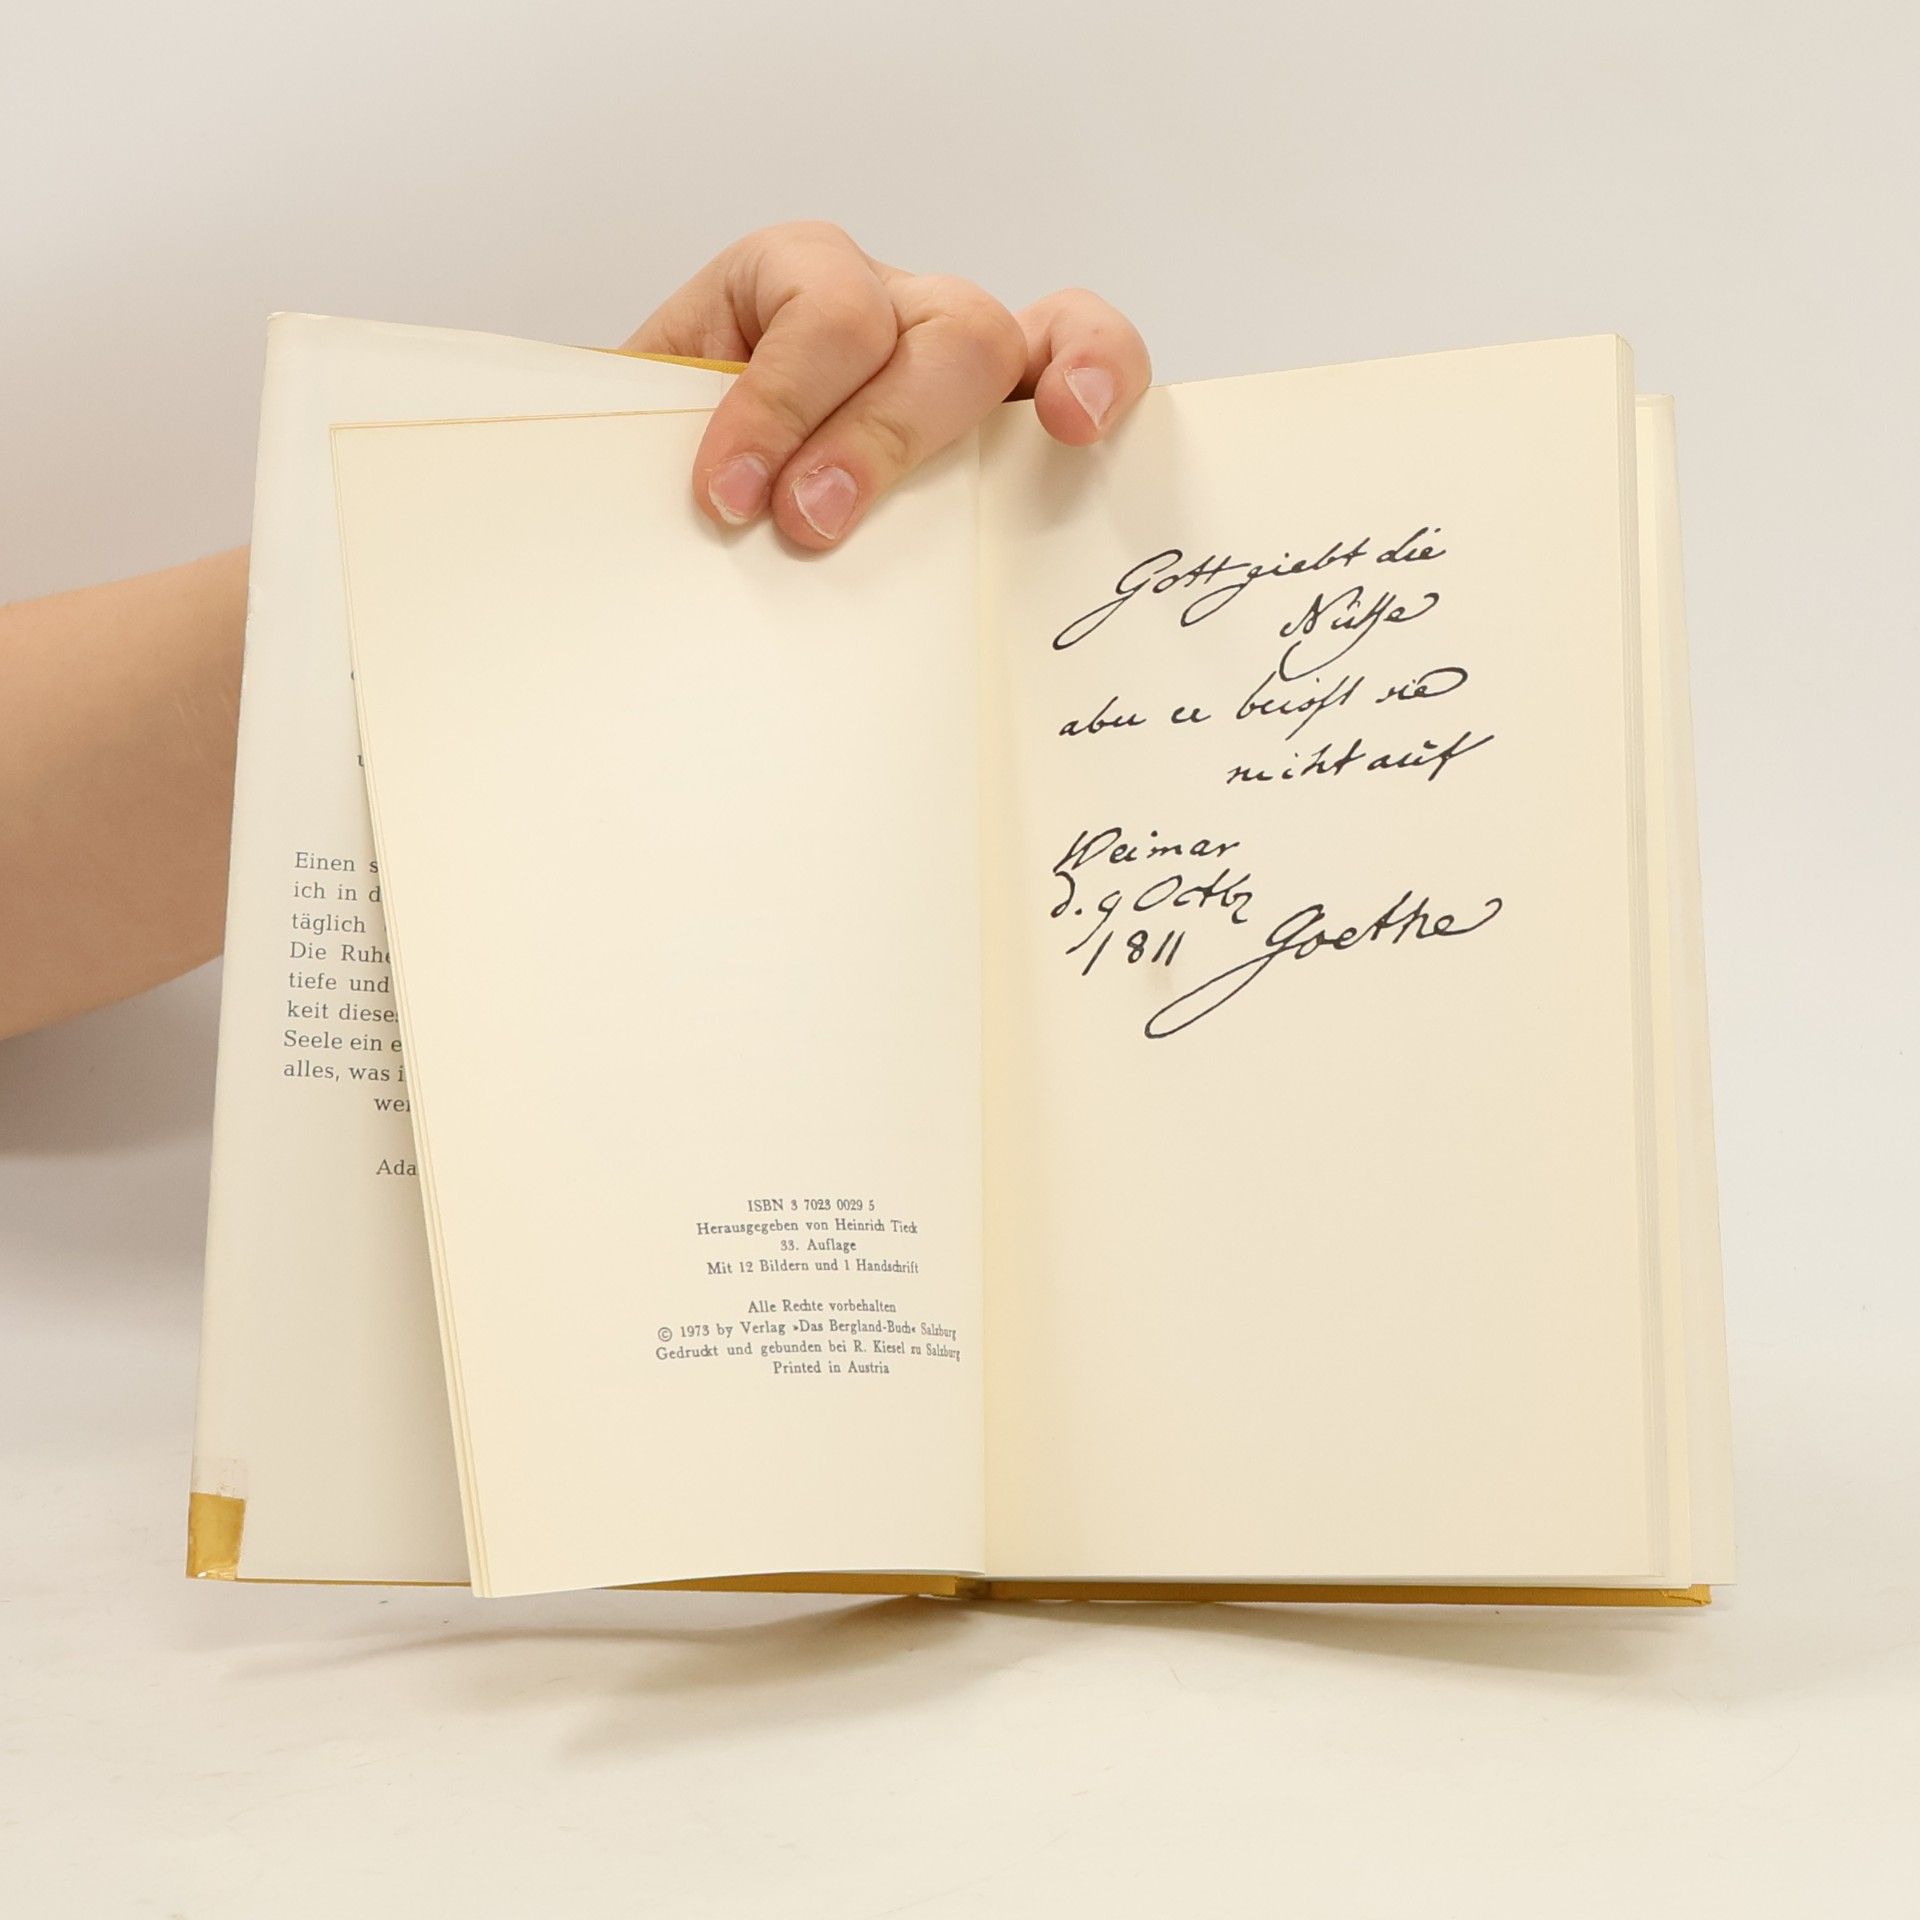 Einen
ich in d
täglich
Die Ruhe
tiefe und
keit dieses
Seele ein e
alles, was i
wer
Ada
ISBN 3 7023 0029 5
Herausgegeben von Heinrich Tieck
33. Auflage
Mit 12 Bildern und 1 Handschrift
Alle Rechte vorbehalten
© 1973 by Verlag »Das Bergland-Buch« Salzburg
Gedruckt und gebunden bei R. Kiesel zu Salzburg
Printed in Austria
Gott giebt die
Nüsse
aber er beisst sie
nicht auf
Weimar
d. 9 Octbr
1811 Goethe